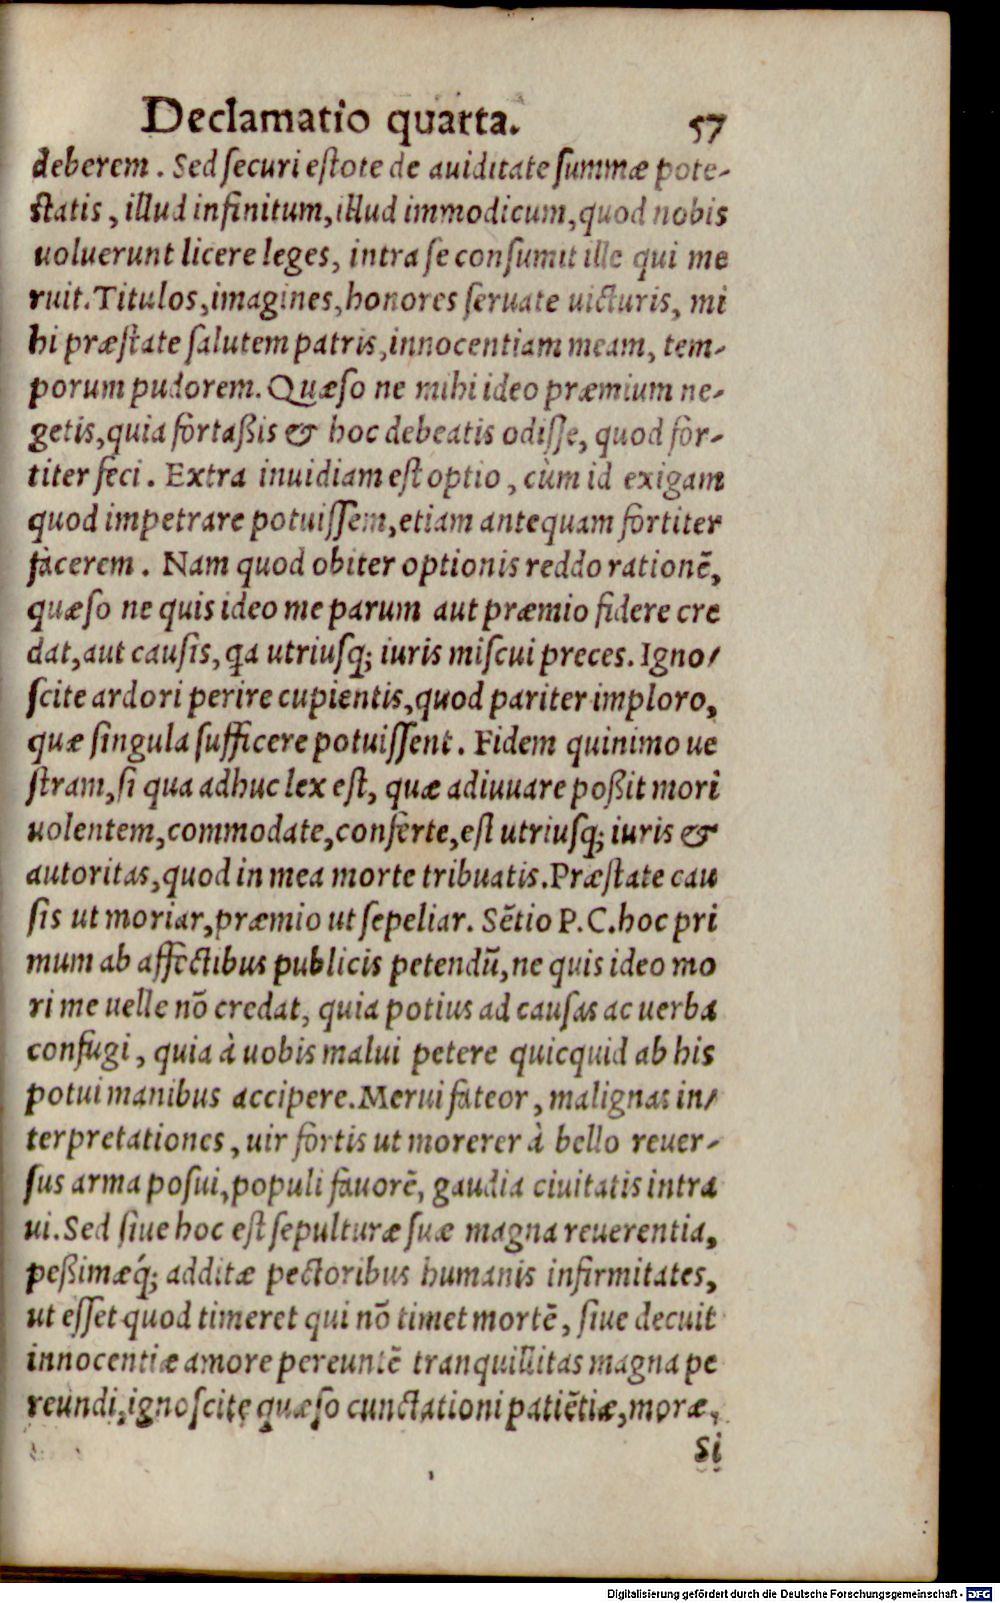 Declamatio quarta. 57
deberem. Sed ſecuri eſtote de auiditate ſummæ pote-
ſtatis, illud infinitum, illud immodicum, quod nobis
uoluerunt licere leges, intra ſe conſumit ille qui me
ruit. Titulos, imagines, honores ſeruate uicturis, mi
hi præſtate ſalutem patris, innocentiam meam, tem-
porum pudorem. Quæſo ne mihi ideo præmium ne-
getis, quia fortaßis & hoc debeatis odiſſe, quod for-
titer feci. Extra inuidiam eſt optio, cùm id exigam
quod impetrare potuiſſem, etiam antequam fortiter
facerem. Nam quod obiter optionis reddo rationē,
quæſo ne quis ideo me parum aut præmio fidere cre
dat, aut cauſis, qa utriuſq; iuris miſcui preces. Igno-
ſcite ardori perire cupientis, quod pariter imploro,
quæ ſingula ſufficere potuiſſent. Fidem quinimo ue
ſtram, ſi qua adhuc lex eſt, quæ adiuuare poßit mori
uolentem, commodate, conferte, eſt utriuſq; iuris &
autoritas, quod in mea morte tribuatis. Præſtate cau
ſis ut moriar, præmio ut ſepeliar. Sētio P.C. hoc pri
mum ab affectibus publicis petendū, ne quis ideo mo
ri me uelle nō credat, quia potius ad cauſas ac uerba
confugi, quia à uobis malui petere quicquid ab his
potui manibus accipere. Merui fateor, malignas in-
terpretationes, uir fortis ut morerer à bello reuer-
ſus arma poſui, populi fauorē, gaudia ciuitatis intra
ui. Sed ſiue hoc eſt ſepulturæ ſuæ magna reuerentia,
peßimæq́; additæ pectoribus humanis infirmitates,
ut eſſet quod timeret qui nō timet mortē, ſiue decuit
innocentiæ amore pereuntē tranquillitas magna pe
reundi, ignoſcite quæſo cunctationi patiētiæ, moræ,
Si
Digitalisierung gefördert durch die Deutsche Forschungsgemeinschaft - DFG